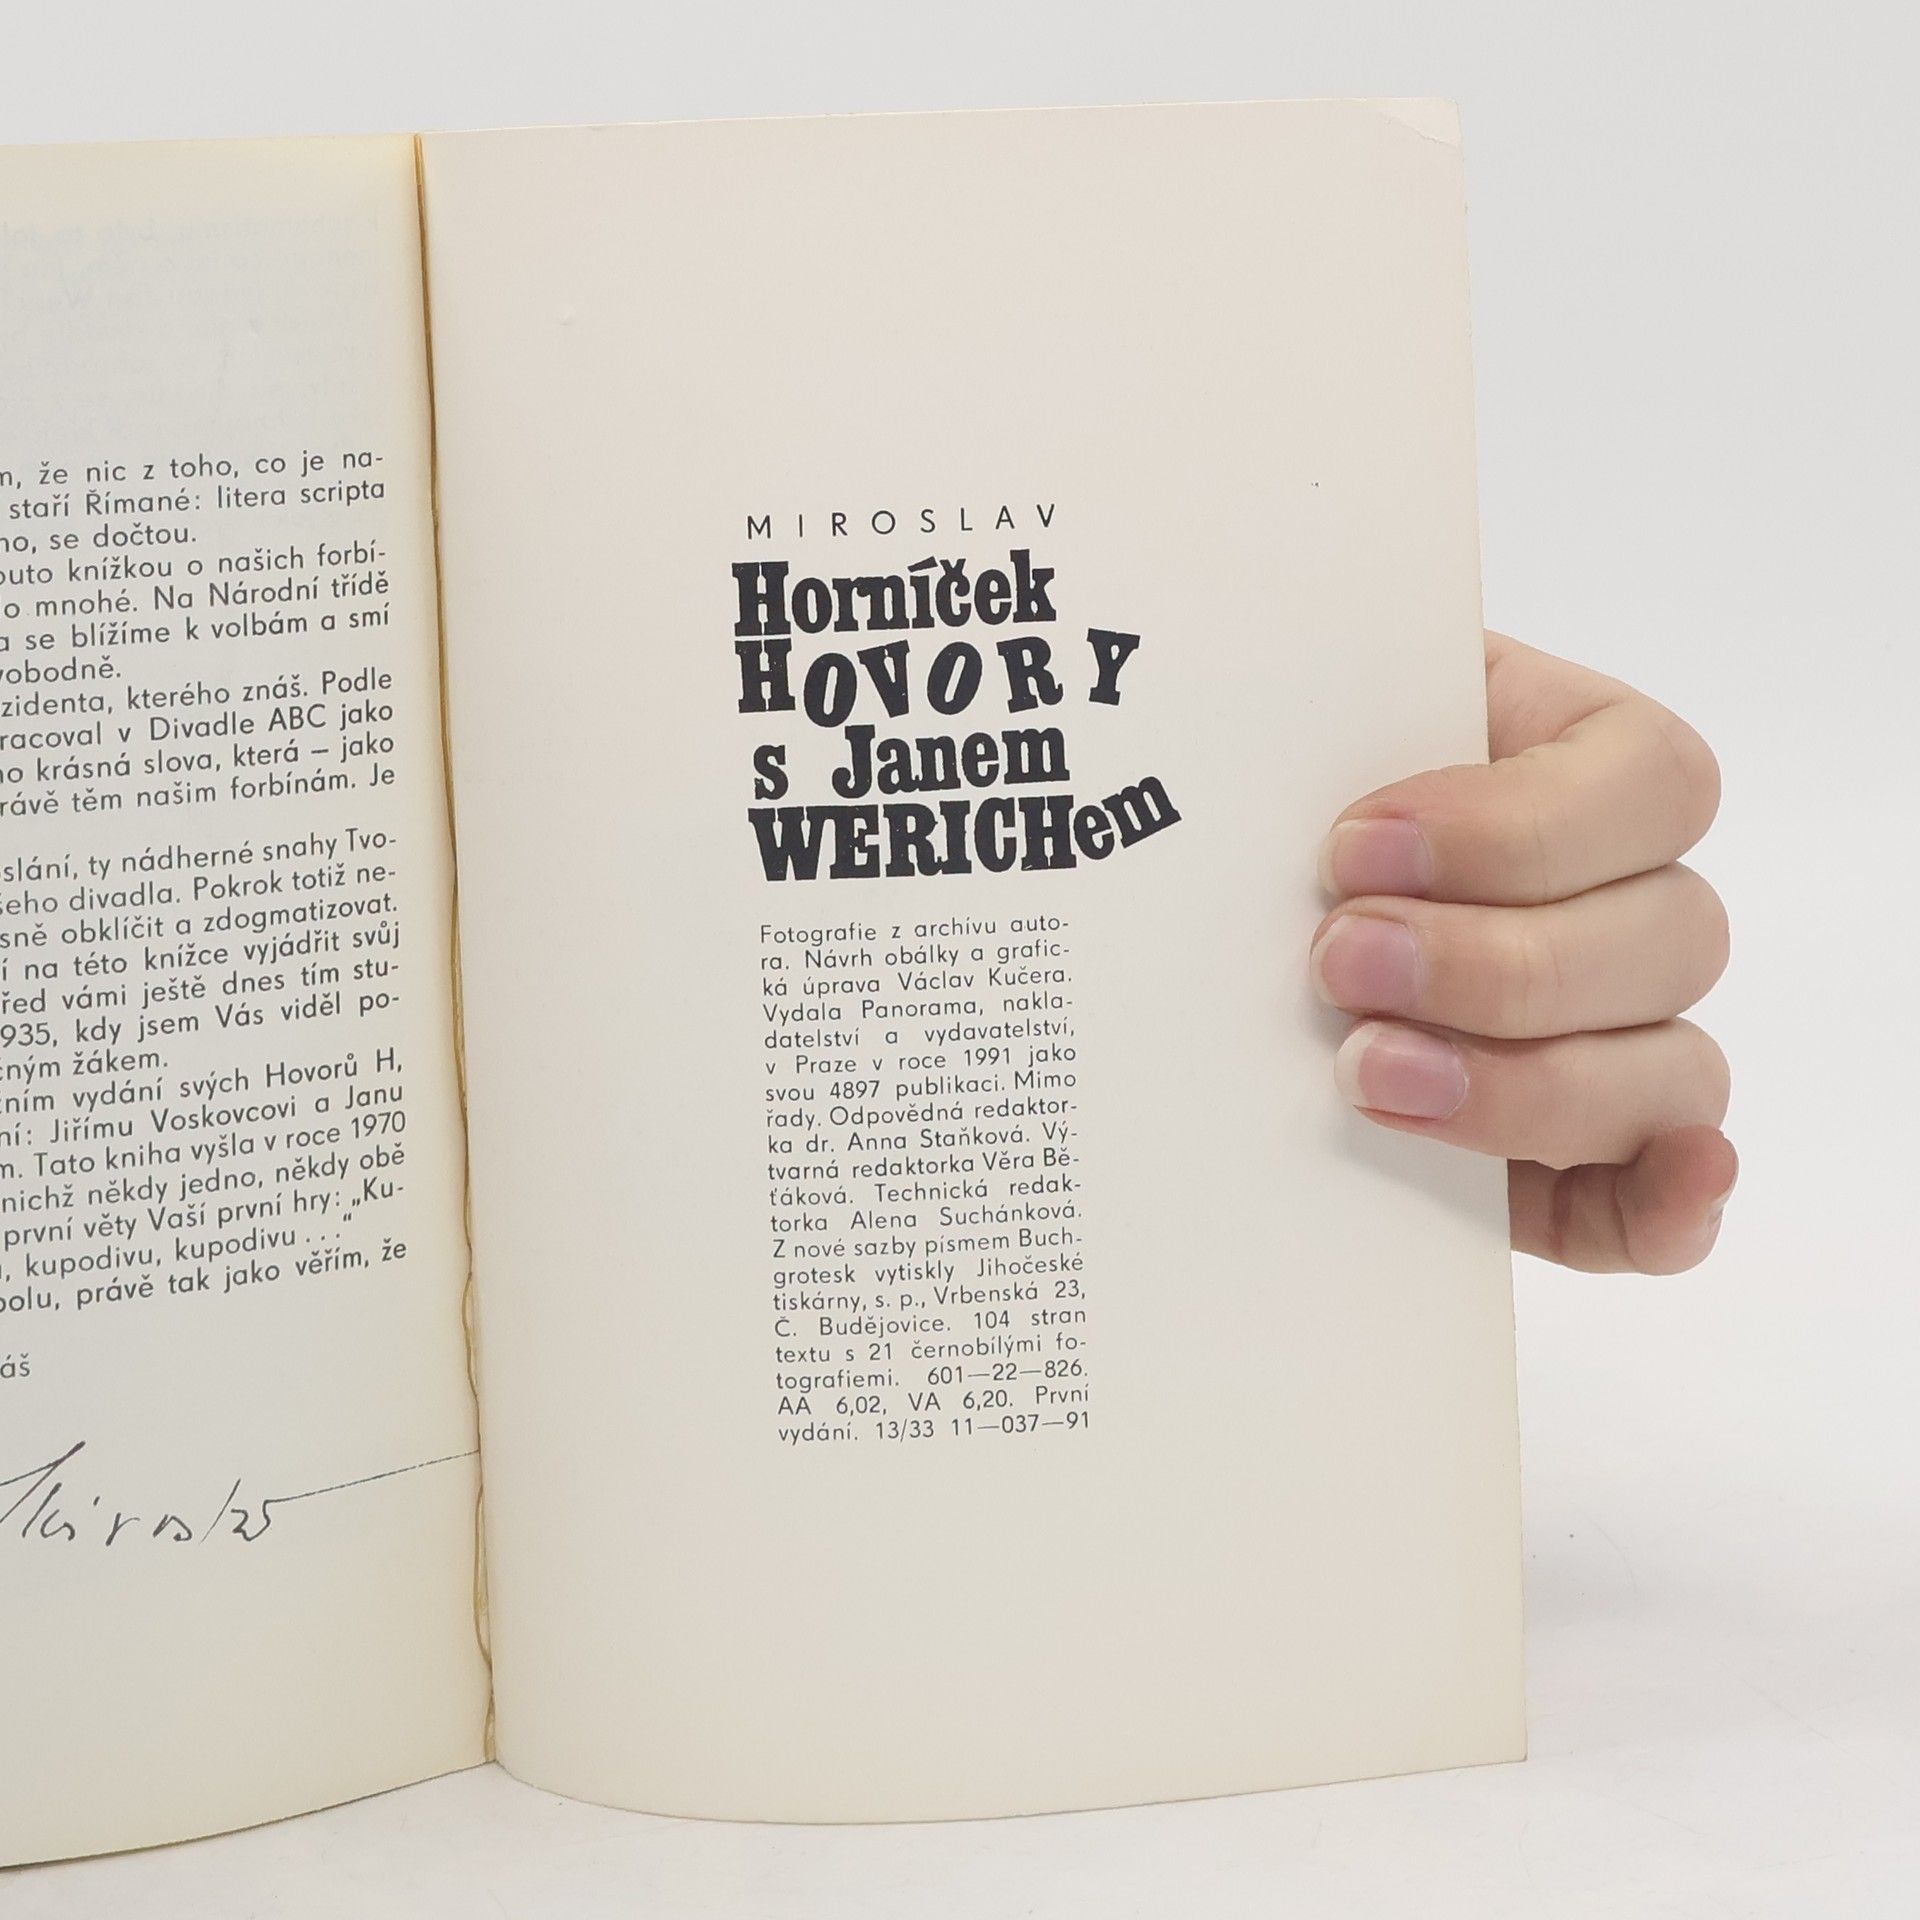 m, že nic z toho, co je na-
staří Římané: litera scripta
ho, se dočtou.
outo knížkou o našich forbí-
o mnohé. Na Národní třídě
a se blížíme k volbám a smí
vobodně.
zidenta, kterého znáš. Podle
racoval v Divadle ABC jako
ho krásná slova, která – jako
rávě těm našim forbínám. Je
slání, ty nádherné snahy Tvo-
šeho divadla. Pokrok totiž ne-
sně obklíčit a zdogmatizovat.
í na této knížce vyjádřit svůj
řed vámi ještě dnes tím stu-
935, kdy jsem Vás viděl po-
čným žákem.
ním vydání svých Hovorů H,
ní: Jiřímu Voskovcovi a Janu
m. Tato kniha vyšla v roce 1970
nichž někdy jedno, někdy obě
první věty Vaší první hry: „Ku-
, kupodivu, kupodivu . . .“
polu, právě tak jako věřím, že
áš
Miroslav
MIROSLAV
Horníček
HOVORY
s Janem
WERICHem
Fotografie z archívu auto-
ra. Návrh obálky a grafic-
ká úprava Václav Kučera.
Vydala Panorama, nakla-
datelství a vydavatelství,
v Praze v roce 1991 jako
svou 4897 publikaci. Mimo
řady. Odpovědná redaktor-
ka dr. Anna Staňková. Vý-
tvarná redaktorka Věra Bě-
ťáková. Technická redak-
torka Alena Suchánková.
Z nové sazby písmem Buch-
grotesk vytiskly Jihočeské
tiskárny, s. p., Vrbenská 23,
Č. Budějovice. 104 stran
textu s 21 černobílými fo-
tografiemi. 601—22—826.
AA 6,02, VA 6,20. První
vydání. 13/33 11—037—91